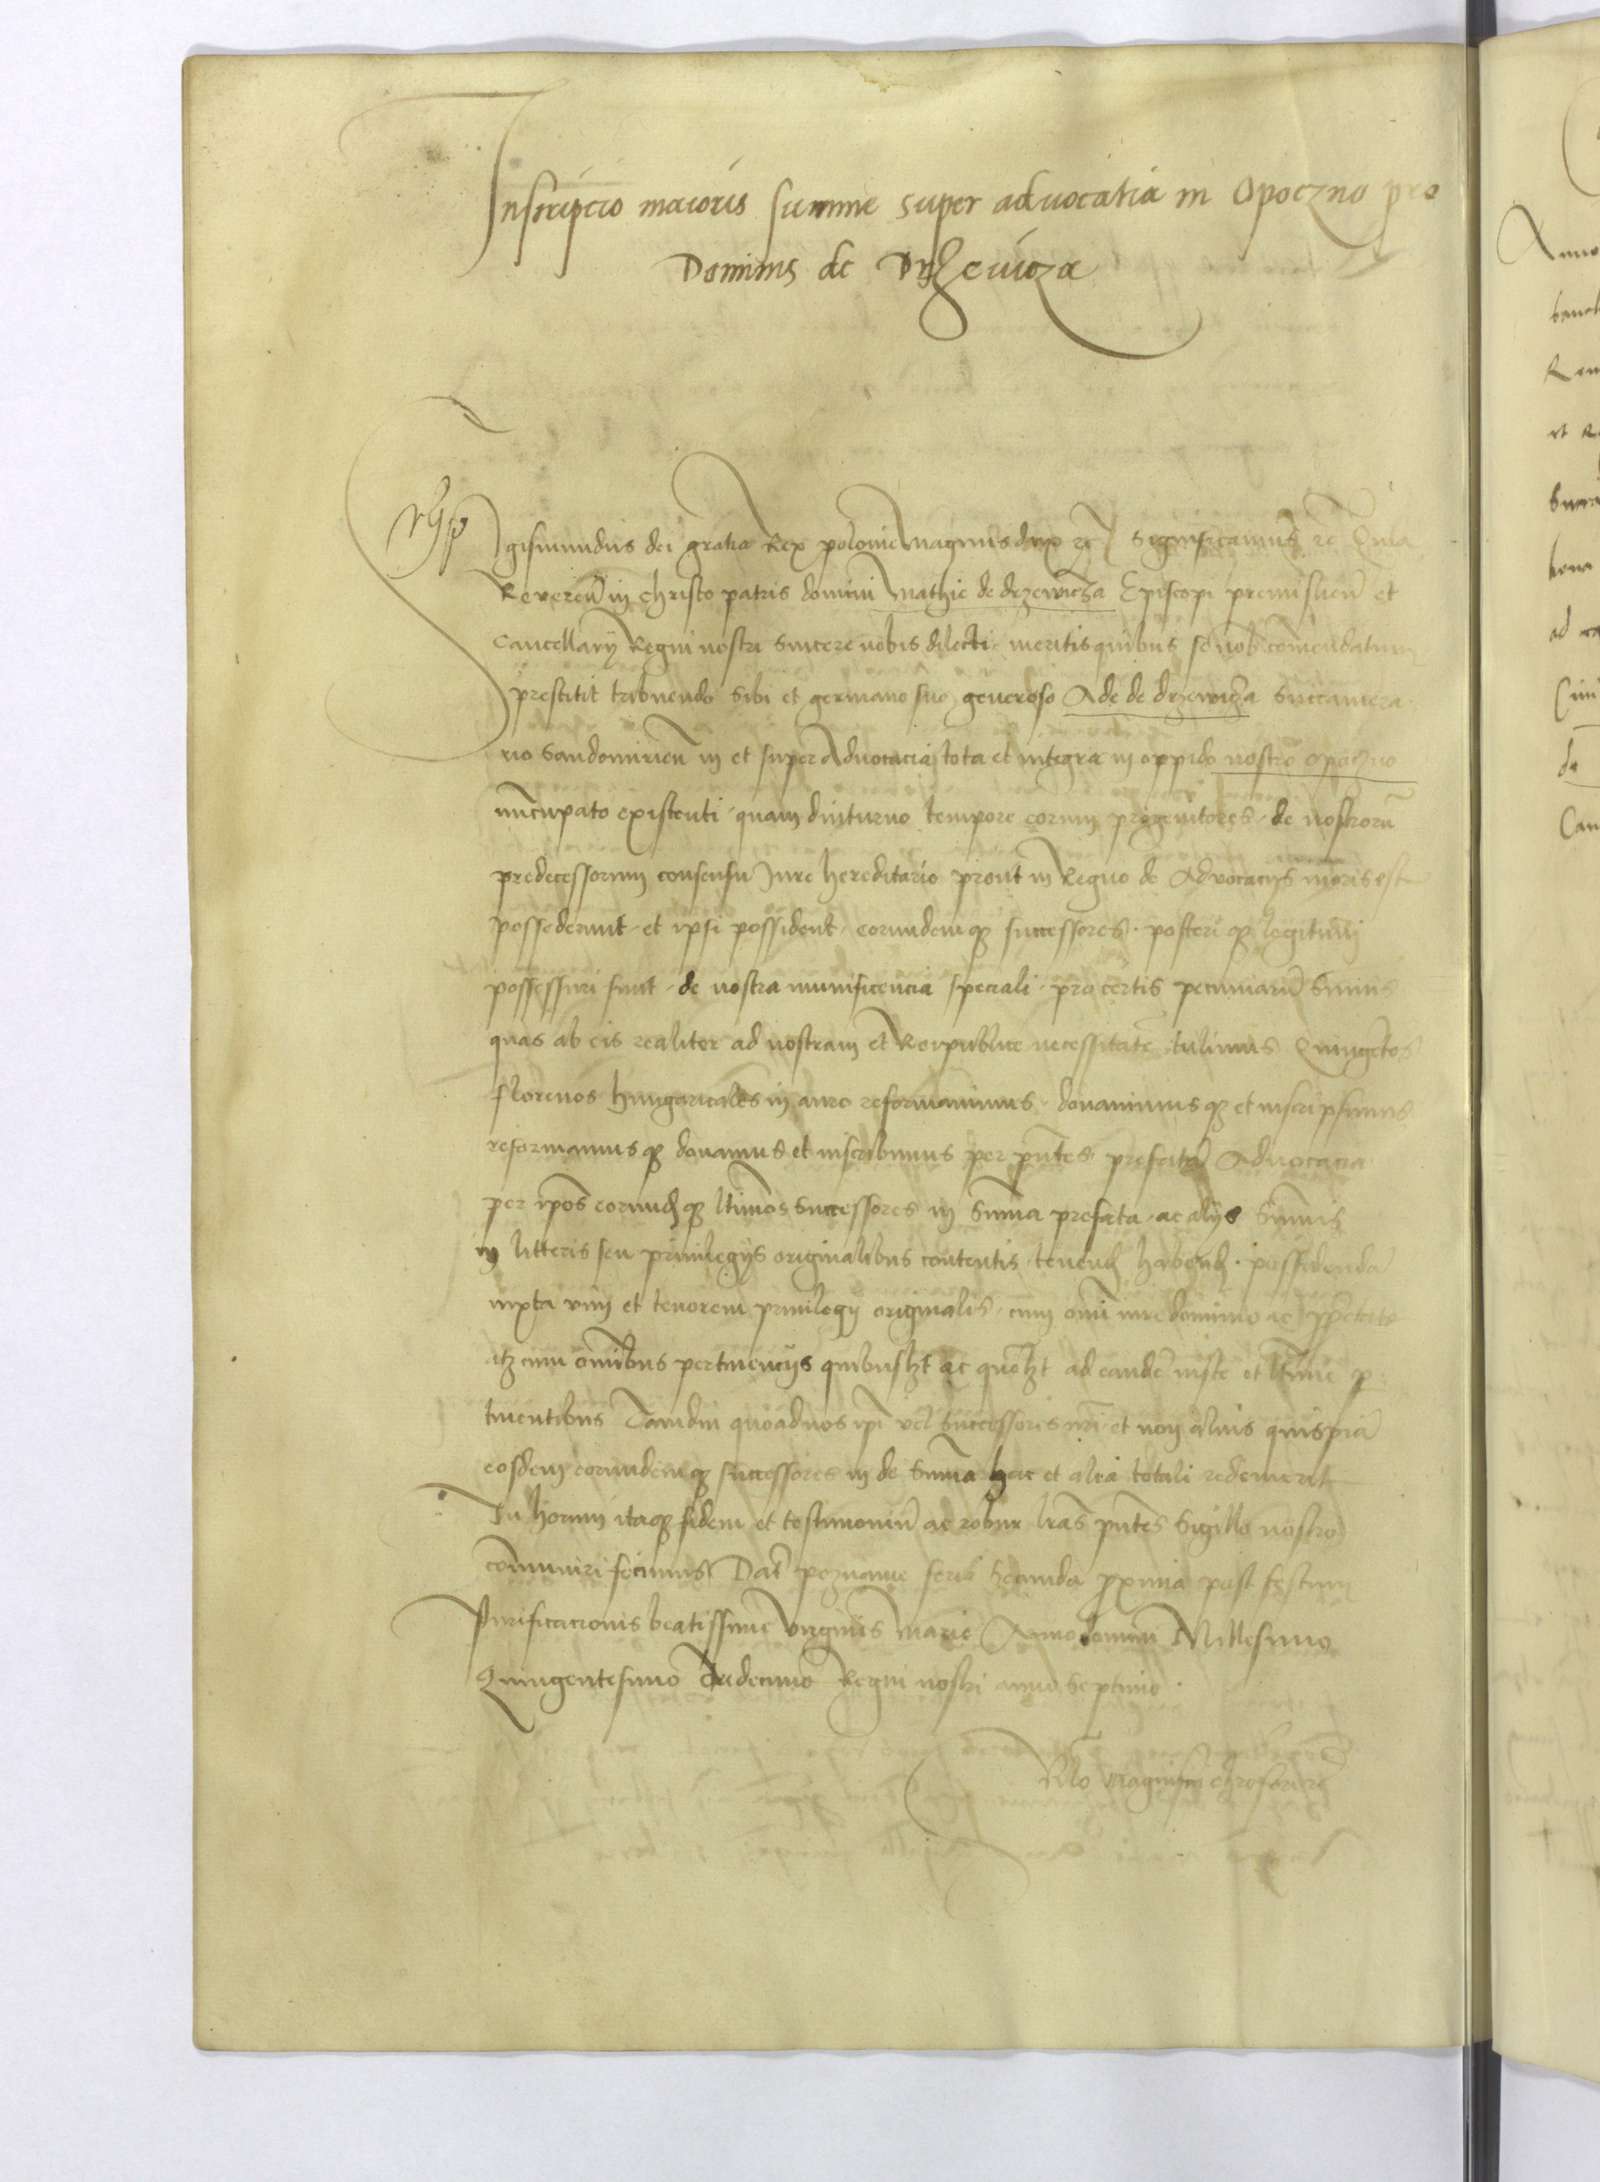 Inscripcio maioris summe super advocatia in Opoczno pro
Dominis de Drzevicza
Sigismundus dei gratia Rex polonie Magnus dux rc Significamus rc Quia
Reveren in christo patris domini Mathie de drzewicza Episcopi premislien et
Cancellarij Regni nostri sincere nobis dilecti meritis quibus se nob comendatum
prestitit tribuendo sibi et germano suo generoso Ade de drzewicza Succamera
rio Sandomirien in et super Advocacia tota et integra in oppido nostro opoczno
nuncupato existenti quam diuturno tempore eorum progenitores de nostroru
predecessorum consensu Iure hereditario prout in Regno de Advocacijs moris est
possederunt et ipsi possident eorundemq successores posteriq legitimi
possessuri sunt de nostra munificencia speciali pro certis pecuniaru Sumis
quas ab eis realiter ad nostram et Reipublice necessitate tulimus Quingetos
florenos hungaricales in auro reformavimus donavimusq et inscripsimus
reformamusq donamus et inscribimus per pntes prefata Advocacia
per ipos eorundq ltimos Successores in Suma prefata ac alijs Sumis
in litteris seu privilegijs originalibus contentis tenend habend possidenda
iuxta vim et tenorem privilegij originalis cum omi iure dominio ac pprietate
atz cum omibus pertinencijs quibuslzt ac quolzt ad eande iuste et ltime p
tinentibus Tamdiu quoad nos ipi vel Successores nri et non alius quispia
eosdem eorundemq successores in de Suma hac et alia totali redemerit
In horum itaq fidem et testimoniu ac robur lras pntes Sigillo nostro
comuniri fecimus Dat poznanie feria Secunda pxima post festum
Purificacionis beatissime virginis marie Anno domini Millesimo
Quingentesimo Tredecimo Regni nostri anno Septimo